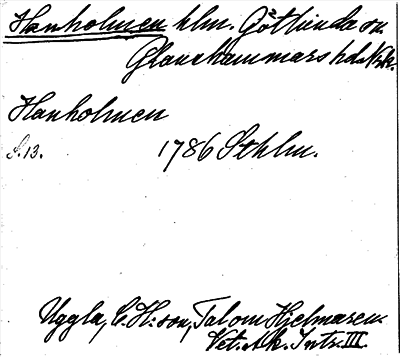 Hanholmen hlm. Götlunda sn.
Glanshammars hd. Nrk.
Hanholmen
S. 13. 1786 Sthlm.
Uggla, C. H:son, Tal om Hjelmaren.
Vet. Ak. Intr. III.